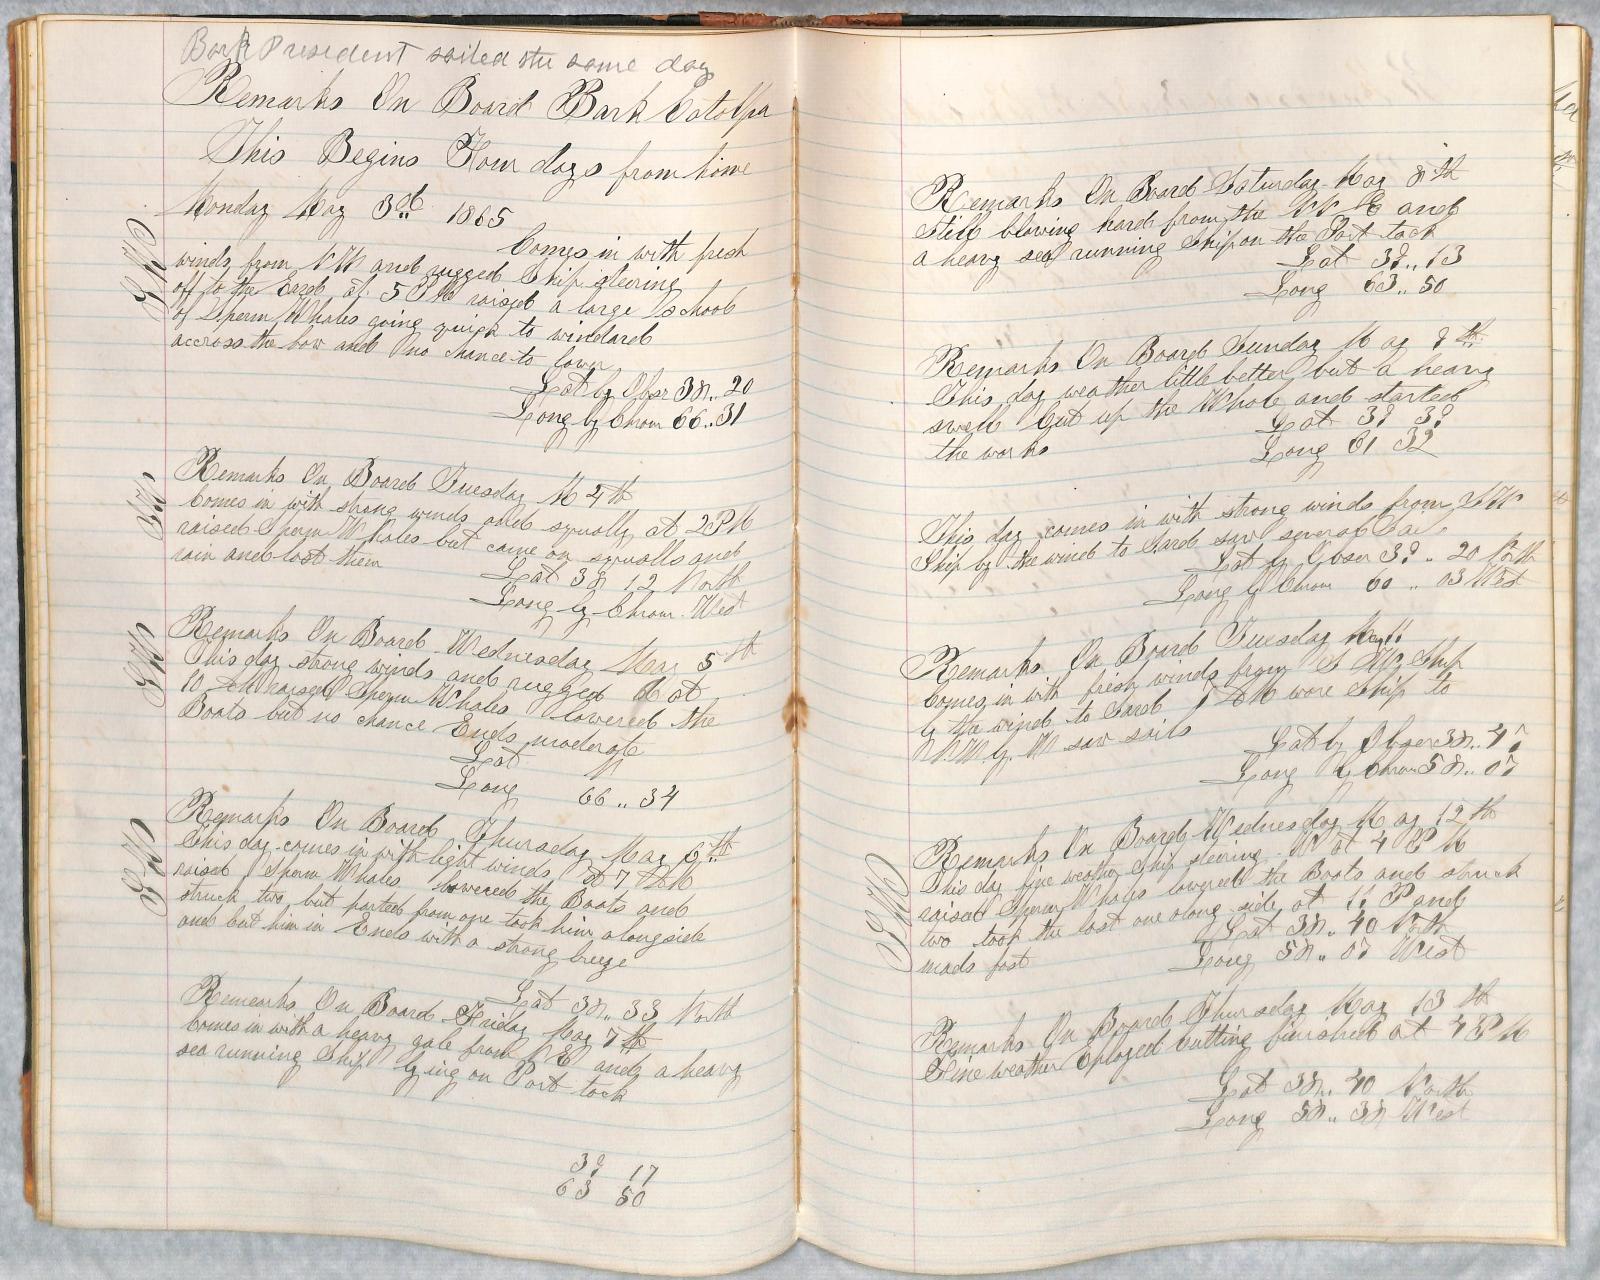 Bark President sailed the same day
Remarks On Board Bark Catalpa
This Begins Four days from home
Monday May 3d 1875
Comes in with fresh
winds from NW and rugged Ship steering
off to the Eard at 5 PM raised a large school
of Sperm Whales going quick to windard
accross the bow and no chance to lower
Lat by Obser 38 .. 20
Long by Chrom 66 .. 31
Remarks On Board Tuesday M 4th
Comes in with strong winds and squally at 2 PM
raised Sperm Whales but came on squalls and
rain and lost them
Lat 38 12 North
Long by Chrom. West
Remarks On Board Wednesday May 5th
This day strong winds and rugged at
10 AM raised Sperm Whales lowered the
Boats but no chance Ends moderate
Lat
Long 66 .. 34
Remarks On Board Thursday May 6th
This day comes in with light winds at 7 AM
raised Sperm Whales lowered the Boats and
struck two but parted from one took him alongside
and cut him in Ends with a strong breeze
Lat 38 .. 33 North
Remarks On Board Friday May 7th
Comes in with a heavy gale from NE and a heavy
sea running Ship lying on Port tack
39 17
63 50
Remarks On Board Saturday May 8th
still blowing hard from the and
a heavy sea running Ship on the Port tack
Lat 39 .. 13
Long 63 .. 50
Remarks On Board Sunday May 9th
This day weather little better but a heavy
swell Cut up the Whale and started
the works
Lat 39 39
Long 61 32
This day comes in with strong winds from
Ship by the wind to Eard saw several Sails
Lat by Obser 39 .. 20 North
Long by Chrom 60 .. 03 West
Remarks On Board Tuesday May 11
Comes in with fresh winds from S W Ship
by the wind to Eard AM wore Ship to
saw sails
Lat by Obser 38 .. 47
Long by Chrom 58 .. 07
Remarks On Board Wednesday May 12th
This day fine weather Ship steering W at 4 PM
raised Sperm Whales lowered the Boats and struck
two took the last one along side at 11 P and
made fast
Lat 38 .. 40 North
Long 58 .. 07 West
Remarks On Board Thursday May 13th
Fine weather Eployed Cutting finished at 4 PM
Lat 38 .. 40 North
Long 58 .. 38 West